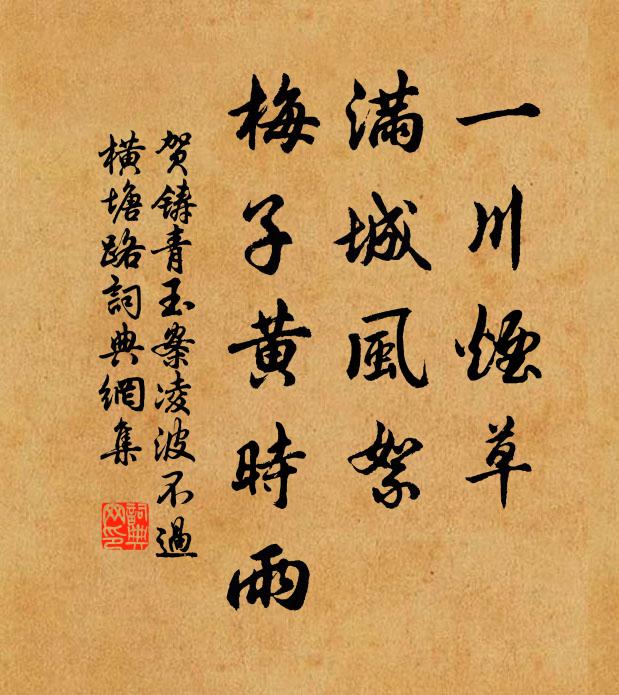 一川煙草
滿城風絮
梅子黄時雨
賀鑄青玉案凌波不過
橫塘路詞典網集
詞典
网印